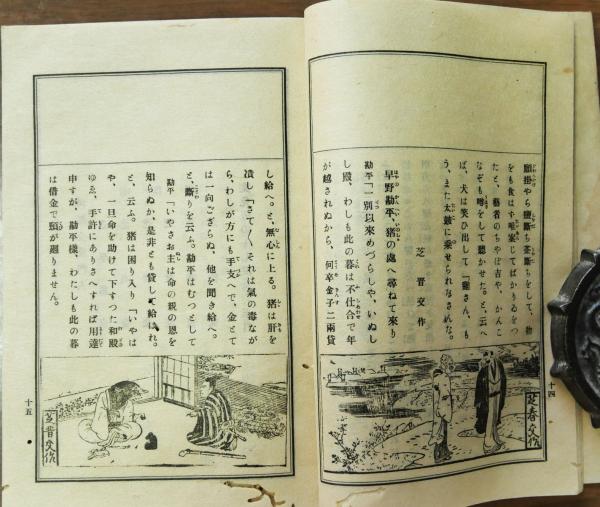 願掛やら鹽斷ち茶斷ちをして、物
をも食はず唱案じてばかりゐをつ
たと、藝者のちやぼ吉や、かんこ
なぞも噂をして聽かせた。と、云へ
ば、犬は笑ひ出して「雞さん、も
う、また太鼓に乘せられなさんな。
芝晋交作
早野勘平、猪の處へ尋ねて來り
勘平「一別以來めづらしや、いぬし
し殿、わしも此の暮は不仕合で年
が越されぬから、何卒金子二兩貸
十四
芝晋交作
し給へ。と、無心に上る。猪は肝を
潰し「さて〳〵、それは氣の毒なが
ら、わしが方にも手支へで、金とて
は一向ござらぬ、他を聞き給へ。
と、斷りを云ふ。勘平はむつとして
勘平「いやさお主は命の親の恩を
知らぬか、是非とも貸して給はれ。
と、云ふ。猪は困り入り「いやは
や、一旦命を助けて下すつた和殿
ゆゑ、手許にありさへすれば用達
申すが、勘平樣、わたしも此の暮
は借金で頸が廻りません。
十五
芝晋交作